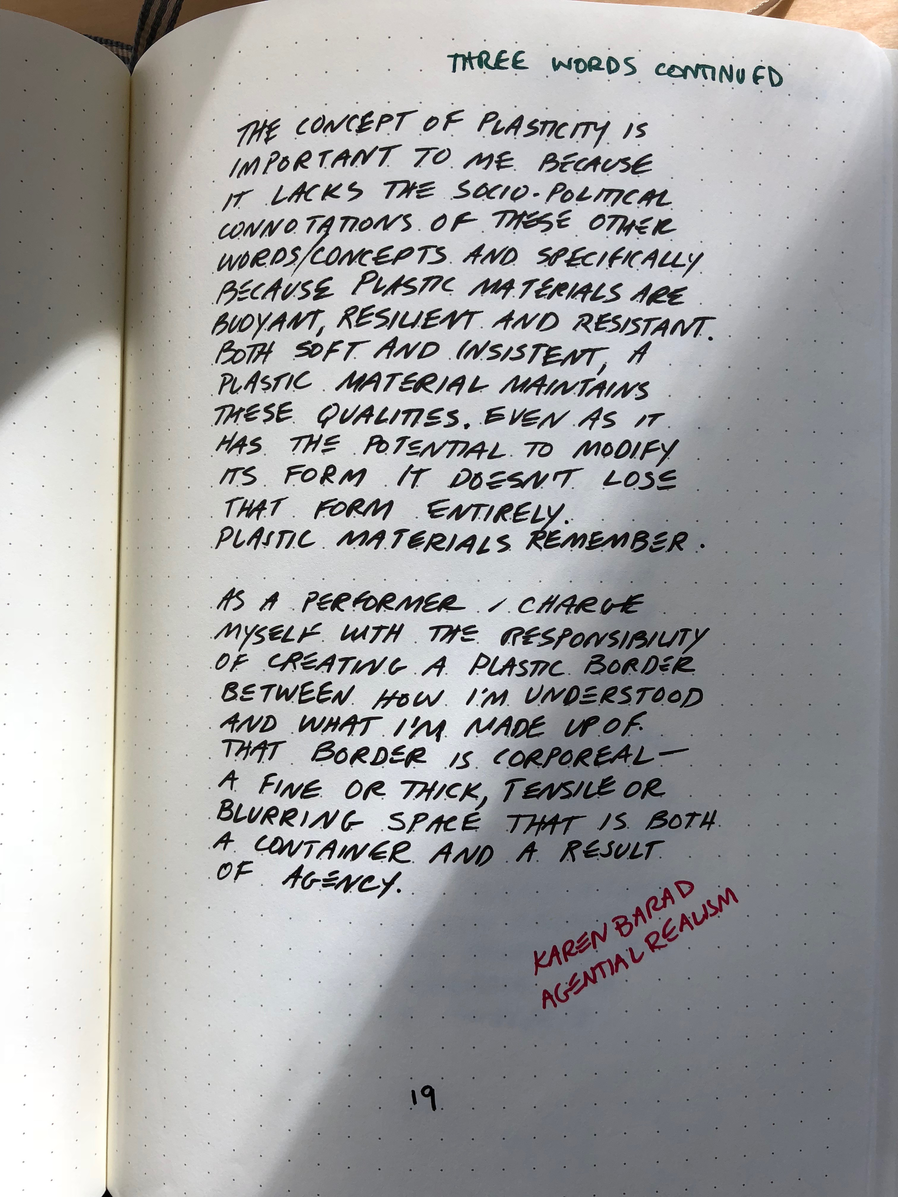 THREE WORDS CONTINUED
THE CONCEPT OF PLASTICITY IS
IMPORTANT TO ME BECAUSE
IT LACKS THE SOCIO-POLITICAL
CONNOTATIONS OF THESE OTHER
WORDS/CONCEPTS AND SPECIFICALLY
BECAUSE PLASTIC MATERIALS ARE
BUOYANT, RESILIENT AND RESISTANT.
BOTH SOFT AND INSISTENT, A
PLASTIC MATERIAL MAINTAINS
THESE QUALITIES. EVEN AS IT
HAS THE POTENTIAL TO MODIFY
ITS FORM IT DOESN'T LOSE
THAT FORM ENTIRELY.
PLASTIC MATERIALS REMEMBER.
AS A PERFORMER I CHARGE
MYSELF WITH THE RESPONSIBILITY
OF CREATING A PLASTIC BORDER
BETWEEN HOW I'M UNDERSTOOD
AND WHAT I'M MADE UP OF.
THAT BORDER IS CORPOREAL—
A FINE OR THICK, TENSILE OR
BLURRING SPACE THAT IS BOTH
A CONTAINER AND A RESULT
OF AGENCY.
KAREN BARAD
AGENTIAL REALISM
19